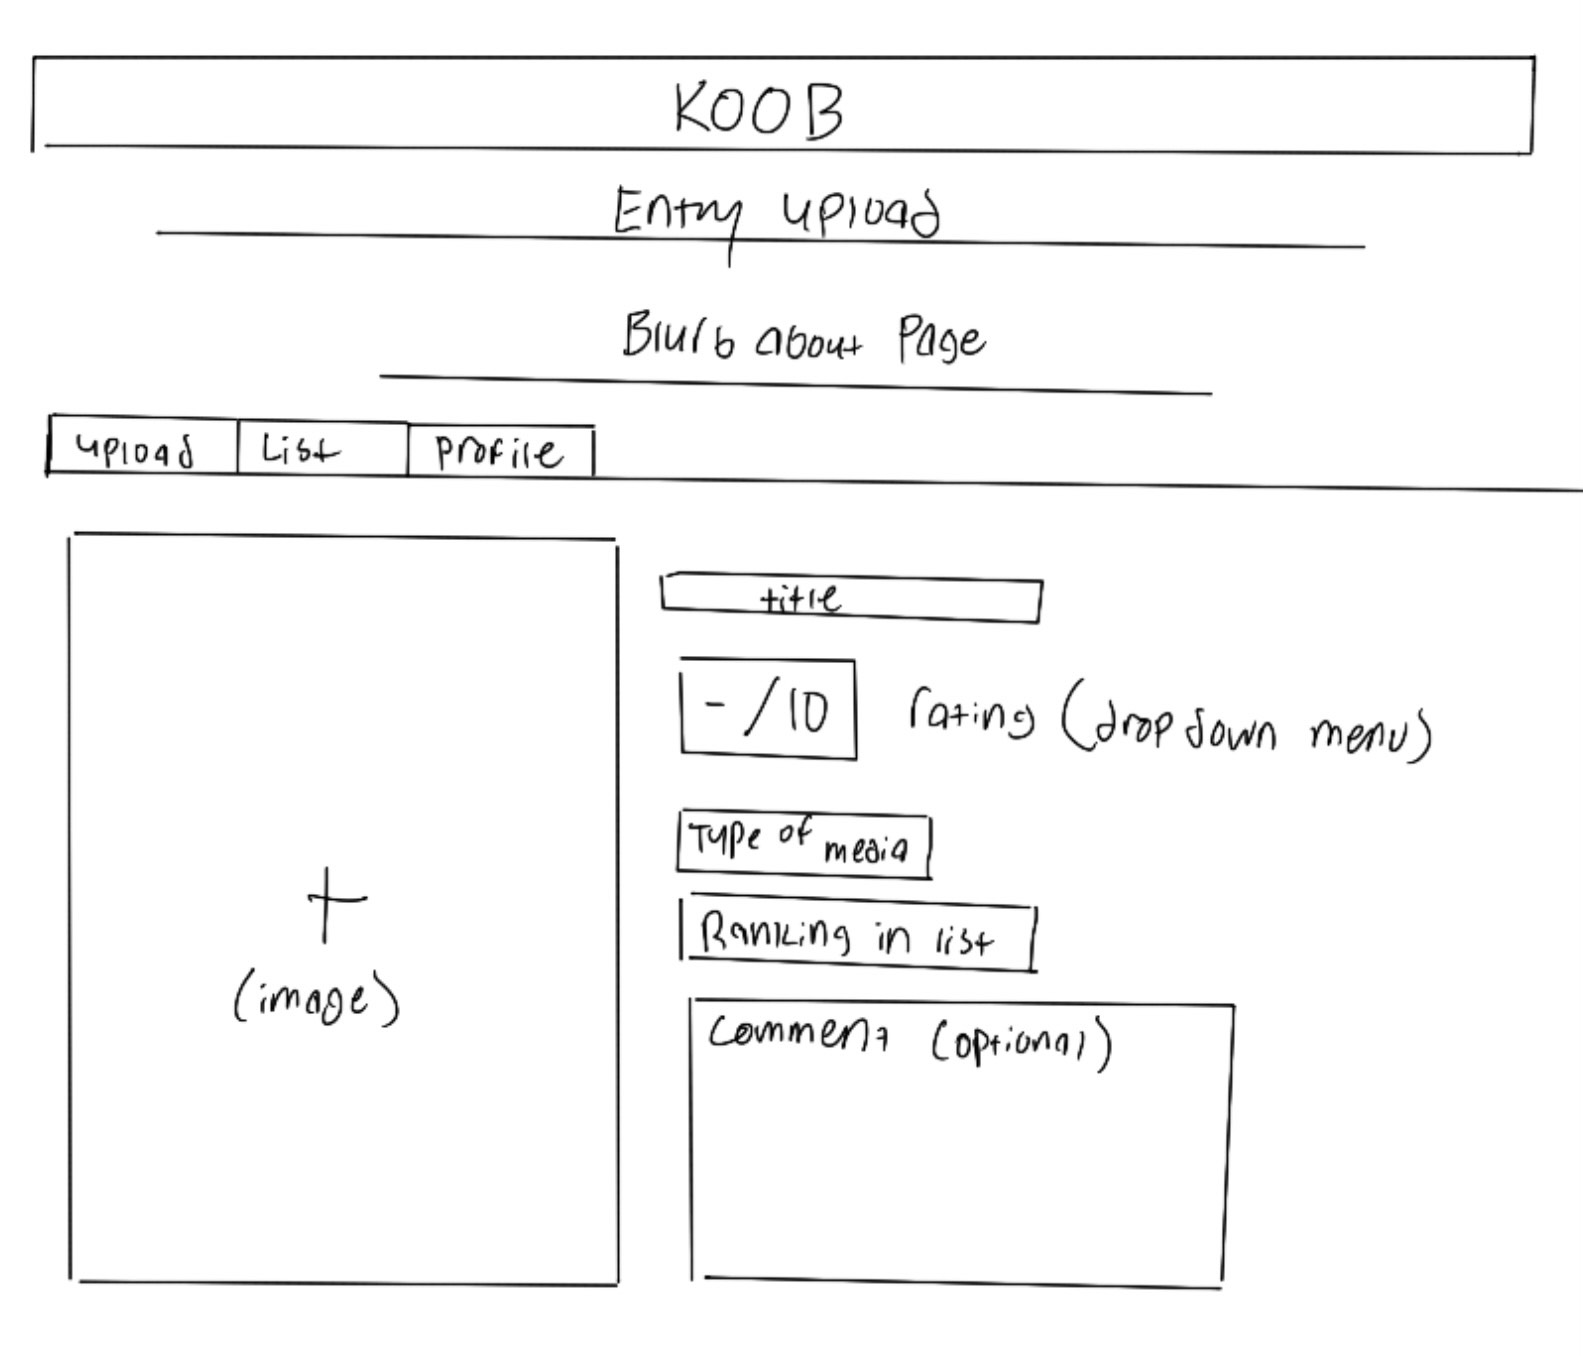 KOOB
Entry upload
Blurb about Page
upload List profile
title
- /10 rating (drop down menu)
Type of media
Ranking in list
+
(image)
Comment (optional)